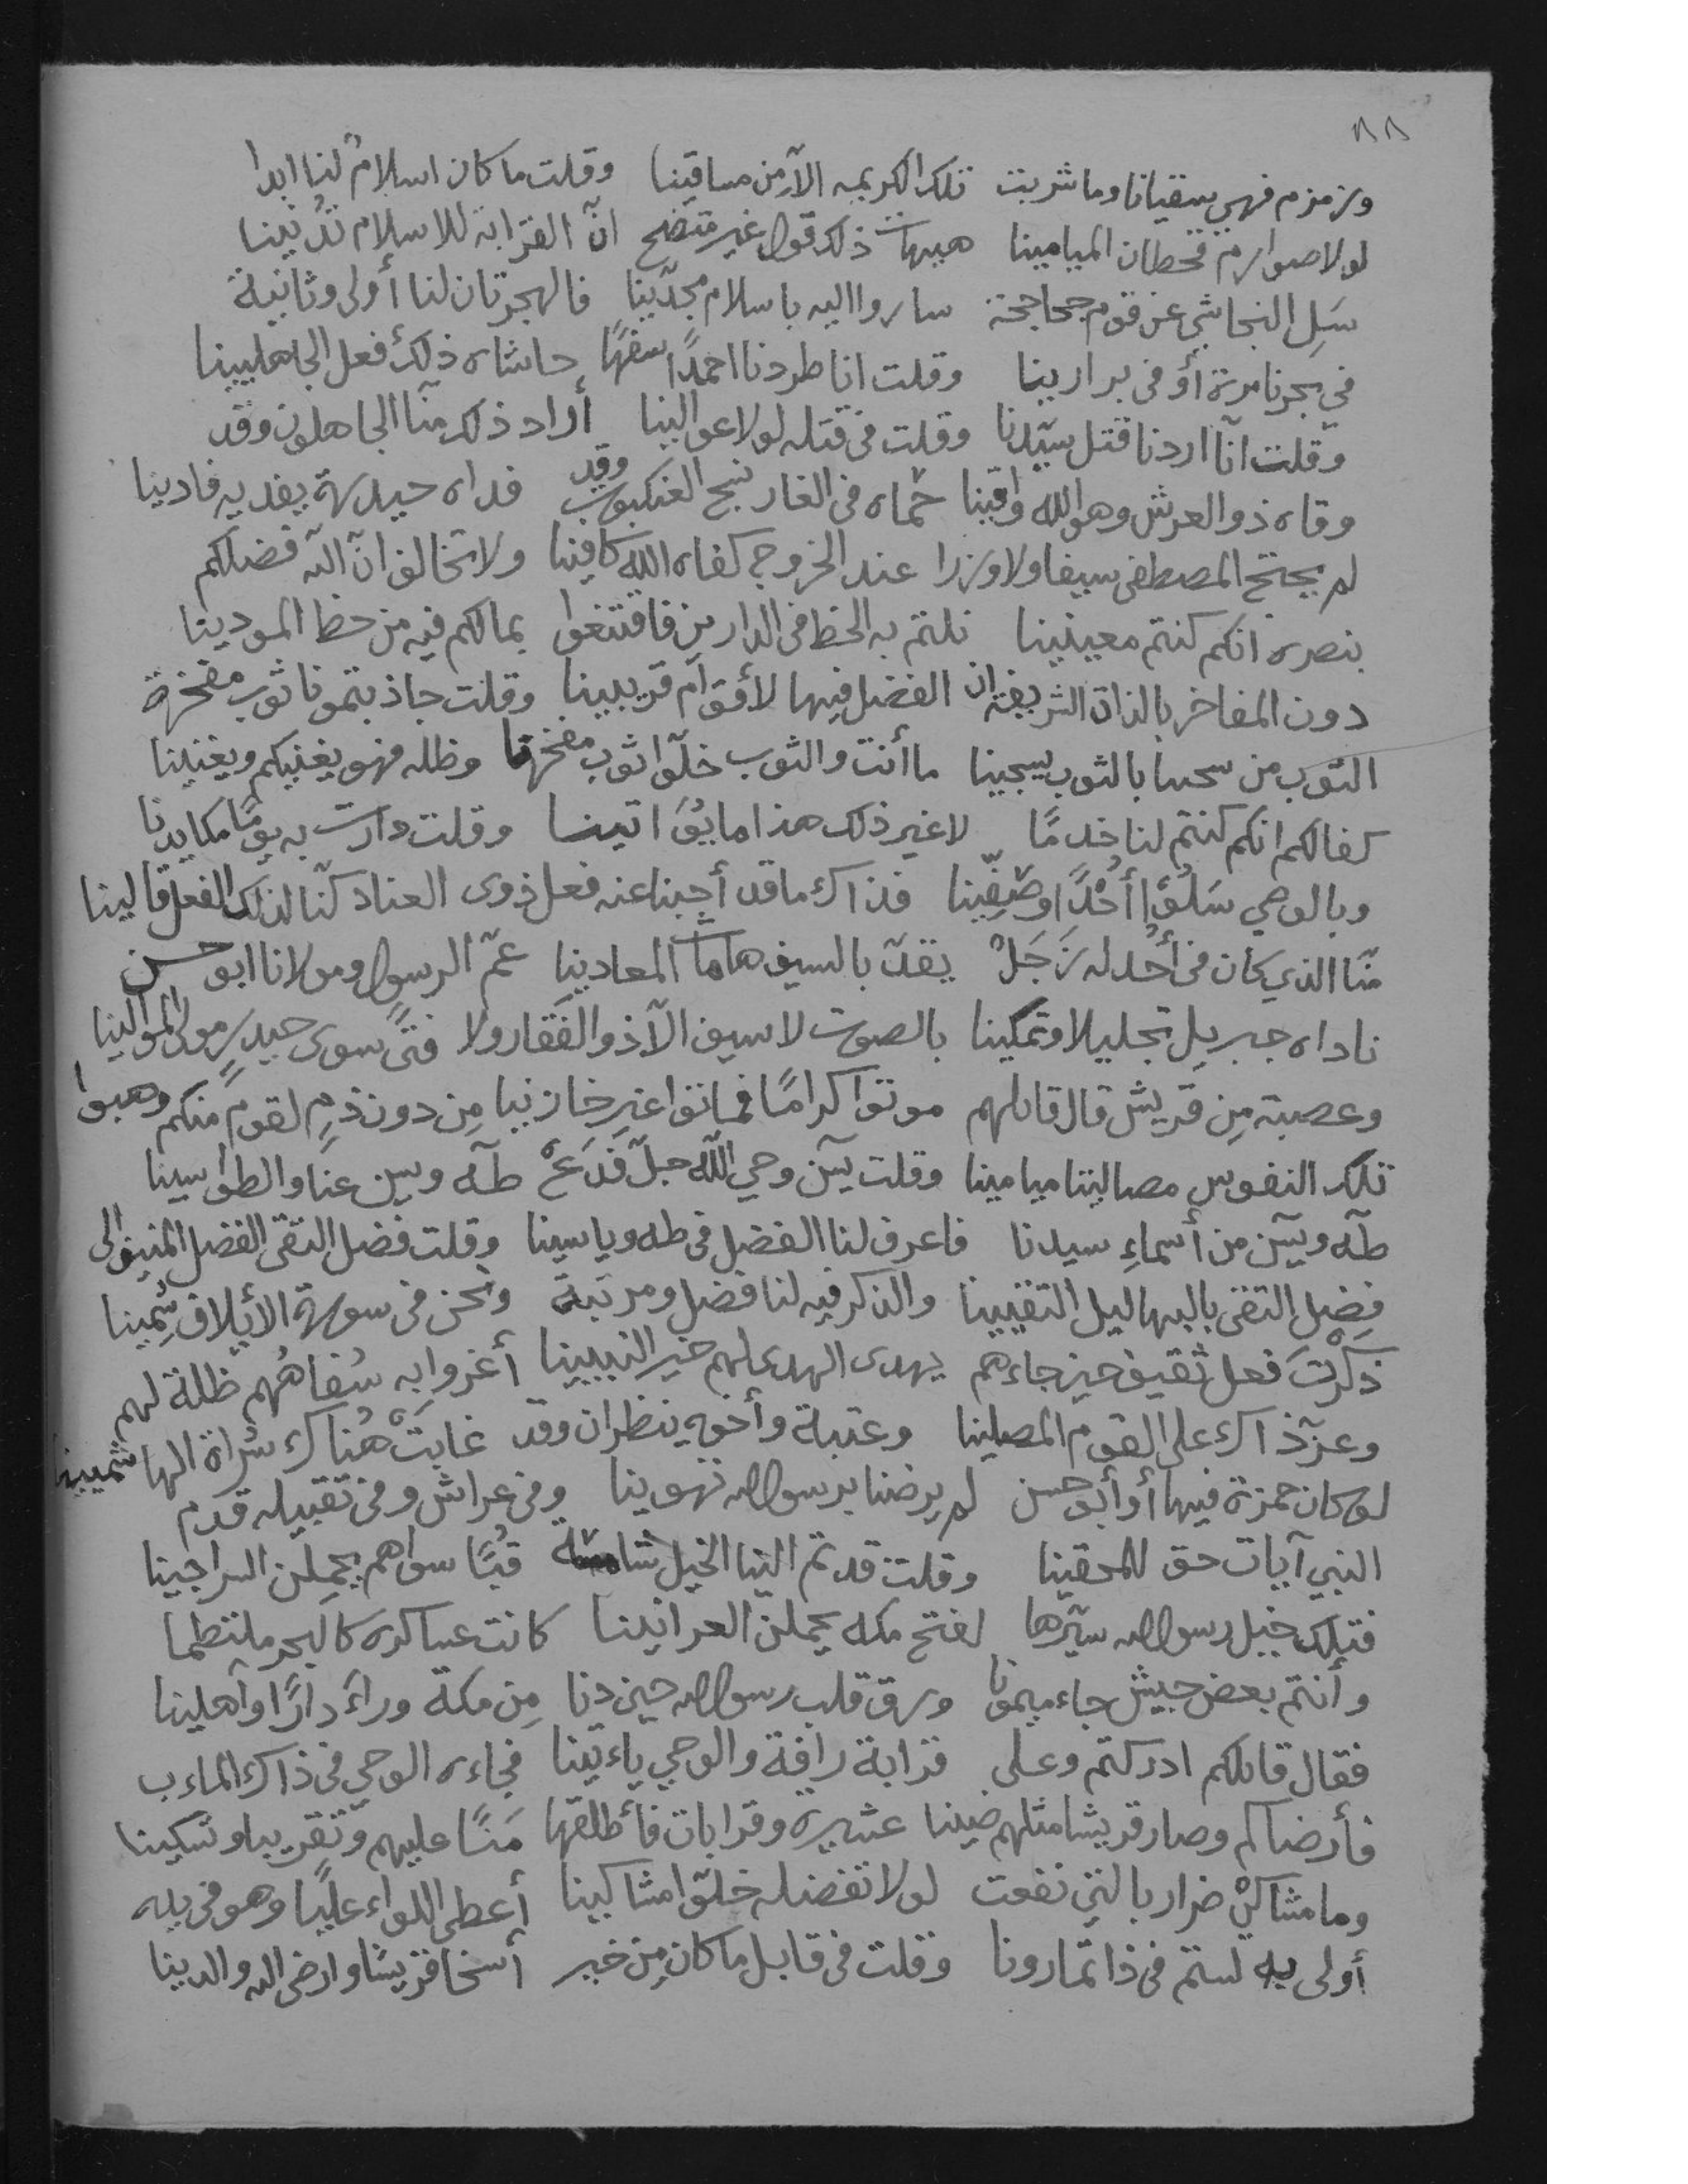 ١٨٨
وزمزم فهي سقيانا وما شربت تلك الكريمه الا من مساقينا وقلت ما كان اسلام لنا ابدا
لولا صوارم قحطان الميامينا هيهات ذلك قول غير متضح ان القرابة للاسلام تدنينا
سل النجاشي عن قوم جحاجحة ساروا اليه باسلام مجدينا فالهجرتان لنا أولى وثانية
في بحرنا مرة أو في برارينا وقلت انا طردنا احمدا سفها حاشاه ذلك فعل الجاهليينا
وقلت انا اردنا قتل سيدنا وقلت في قتله لولا عوالينا أراد ذلك منا الجاهلون وقد
وقاه ذو العرش وهو الله واقينا حماه في الغار نسج العنكبوت وقد فداه حيدرة يفديه فادينا
لم يحتج المصطفى سيفا ولا وزرا عند الخروج كفاه الله كافينا ولا تخالف ان الله فضلكم
بنصره انكم كنتم معينينا نلتم به الحظ في الدارين فاقتنعوا بما لكم فيه من حظ المودينا
دون المفاخر بالذات الشريفة ان الفضل فيها لأقوام قريبينا وقلت جاذبتمونا ثوب مفخرة
الثوب من سحبنا بالثوب يسحبينا ما أنت والثوب خلوا ثوب مفخرنا وظله فهو يغنيكم ويغنينا
كفا لكم انكم كنتم لنا خدما لا غير ذلك هذا ما يؤاتينا وقلت دارت به يوما مكايدنا
وبالوصي سلوا أحدا وصفينا فذاك ما قد أجبنا عنه فعل ذوى العناد كنا لذلك الفعل قالينا
منا الذي كان في أحد له زجل يقد بالسيف هامات المعادينا عم الرسول ومولانا ابو حسن
ناداه جبريل تجليلا وتمكينا بالصوت لا سيف الا ذو الفقار ولا فتى سوى حيدر مولى الموالينا
وعصبة من قريش قال قائلهم موتوا كراما فماتوا غير خازينا من دون ذم لقوم منكم وهبوا
تلك النفوس مصاليتا ميامينا وقلت يس وحي الله جل فدع طه ويس عنا والطواسينا
طه ويس من أسماء سيدنا فاعرف لنا الفضل في طه وياسينا وقلت فضل التقى الفضل المنيف الى
فضل التقى بالبهاليل التقيينا والذكر فيه لنا فضل ومرتبة ونحن في سورة الأيلاف سمينا
ذكرت فعل ثقيف حين جاءهم يهدى الهدى لهم خير النبيينا أغروا به سفاههم ظلة لهم
وعز ذاك على القوم المصلينا وعتبة وأخوه ينظران وقد غابت هناك سراة الهاشميينا
لو كان حمزة فيها أو أبو حسن لم يرضنا برسول الله تهوينا وفي عراش وفي تقبيله قدم
النبي آيات حق للمحقينا وقلت قدتم الينا الخيل قبا سواهم يحملن السراجينا
فتلك خيل رسول الله سيرها لفتح مكه يحملن العرانينا كانت عساكره كالبحر ملتطما
وأنتم بعض جيش جاء ميمونا ورق قلب رسول الله حين دنا من مكة وراء دارا وأهلينا
فقال قائلكم ادركتم وعلى قرابة رافة والوحي ياءتينا فجاءه الوحي في ذاك الماءرب
فأرضاكم وصار قريشا مثلهم ضينا عشيرة وقرابات فأطلقها منا عليهم وتقريبا وتسكينا
وما مشاكن ضرار بالتي نفعت لولا تفضله خلوا مشاكينا أعطى اللواء عليا وهو في يده
أولى به لستم في ذا تمارونا وقلت في قابل ما كان من خير أسخا قريشا وارضى الله والدينا